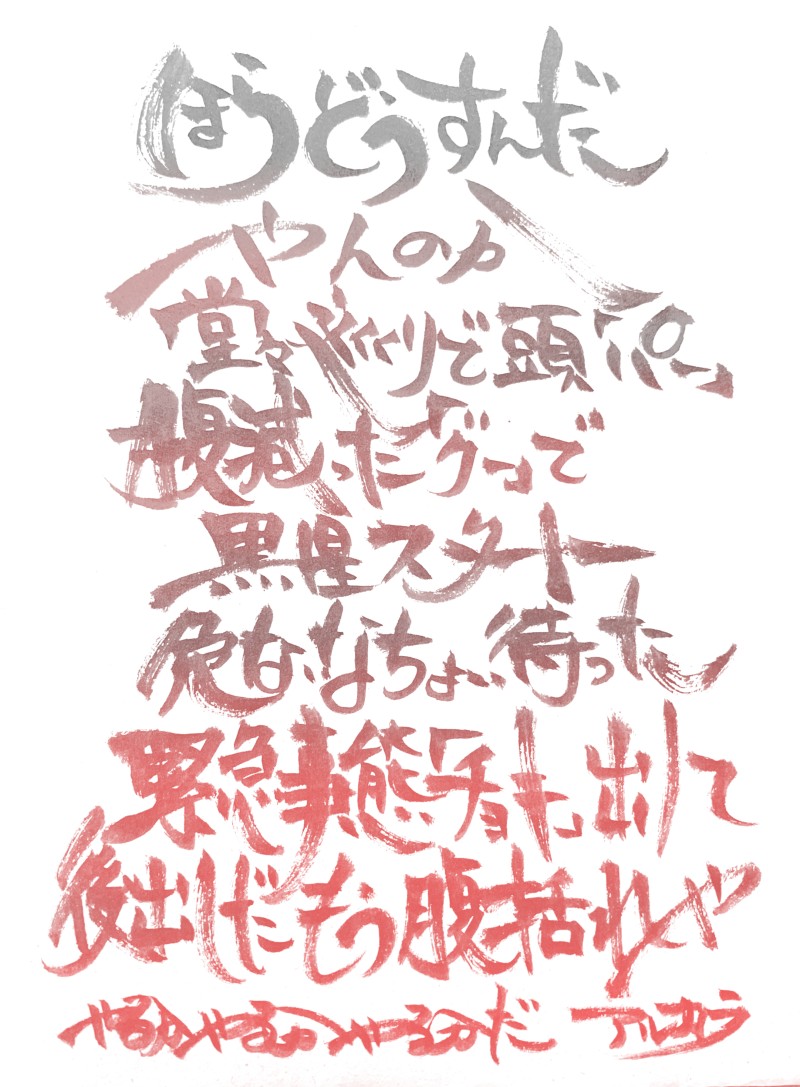 ほらどうすんだ
やんのか
堂々めぐりで頭ん パーッ
腹減ったグーッで
黒星スタート
危ないなちょい待った
緊急事態チョキッ出して
後出しだもう腹括れや
やるかやるかやるかだ アルカラ